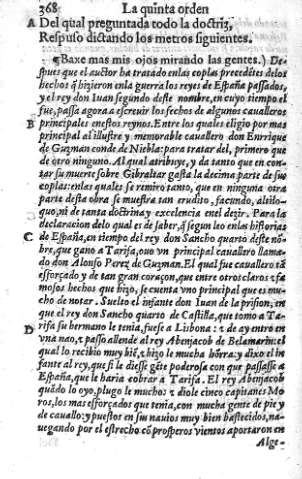 368 La quinta orden
A Del qual preguntada todo la doctriz,
Respuso dictando los metros siguientes.
¶Baxe mas mis ojos mirando las gentes.) De-
spues que el auctor ha tratado enlas coplas precedētes delos
hechos q̃ hizieron enla guerra los reyes de España passados,
y el rey don Iuan segundo deste nombre, en cuyo tiempo el
fue, passa agora a escreuir los fechos de algunos caualleros
B principales enestos reynos. Entre los quales eligio por mas
principal al illustre y memorable cauallero don Enrrique
de Guzman conde de Niebla: para tratar del, primero que
de otro ninguno. Al qual atribuye, y da tanto que en con-
tar su muerte sobre Gibraltar gasta la decima parte de sus
coplas: enlas quales se remiro tanto, que en ninguna otra
parte desta obra se muestra tan erudito, facundo, altilo-
quo, ni de tanta doctrina y excelencia enel dezir. Para la
declaracion delo qual es de saber, q̃ segun leo enlas historias
C de España, en tiempo del rey don Sancho quarto deste nō-
bre, que gano a Tarifa, ouo vn principal cauallero llama-
do don Alonso Perez de Guzman. El qual fue cauallero tā
efforçado y de tan gran coraçon, que entre otros claros y fa
mosos hechos que hizo, se cuenta vno principal que es mu-
cho de notar. Suelto el infante don Iuan de la prision, en
que el rey don Sancho quarto de Castilla, que tomo a Ta-
D rifa su hermano le tenia, fuese a Lisbona: ꝛ de ay entro en
vna nao, ꝛ passo allende al rey Abenjacob de Belamarin: el
qual lo recibio muy biē, ꝛ hizo le mucha hōrra: y dixo el in
fante al rey, que si le diesse gēte poderosa con que passasse a
España, que le haria cobrar a Tarifa. El rey Abenjacob
quādo lo oyo, plugo le mucho: ꝛ diole cinco capitanes Mo
ros, los mas efforçados que tenia, con mucha gente de pie y
de cauallo: y puestos en sus nauios muy bien bastecidos, na-
uegando por el estrecho cō prosperos vientos aportaron en
Alge-